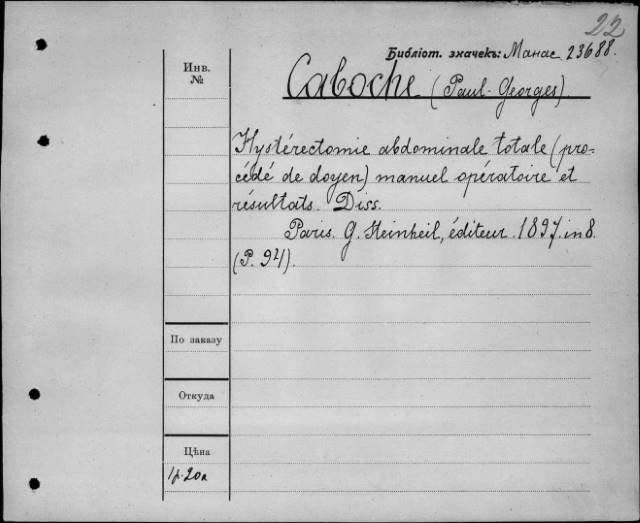 22
Библіот. значекъ: Манас 23688.
Инв.
№
Caboche (Paul-Georges).
Hystérectomie abdominale totale (pro-
cédé de doyen) manuel opératoire et
résultats. Diss.
Paris. G. Steinheil, éditeur. 1897. in 8.
(P. 94).
По заказу
Откуда
Цѣна
1р. 20к